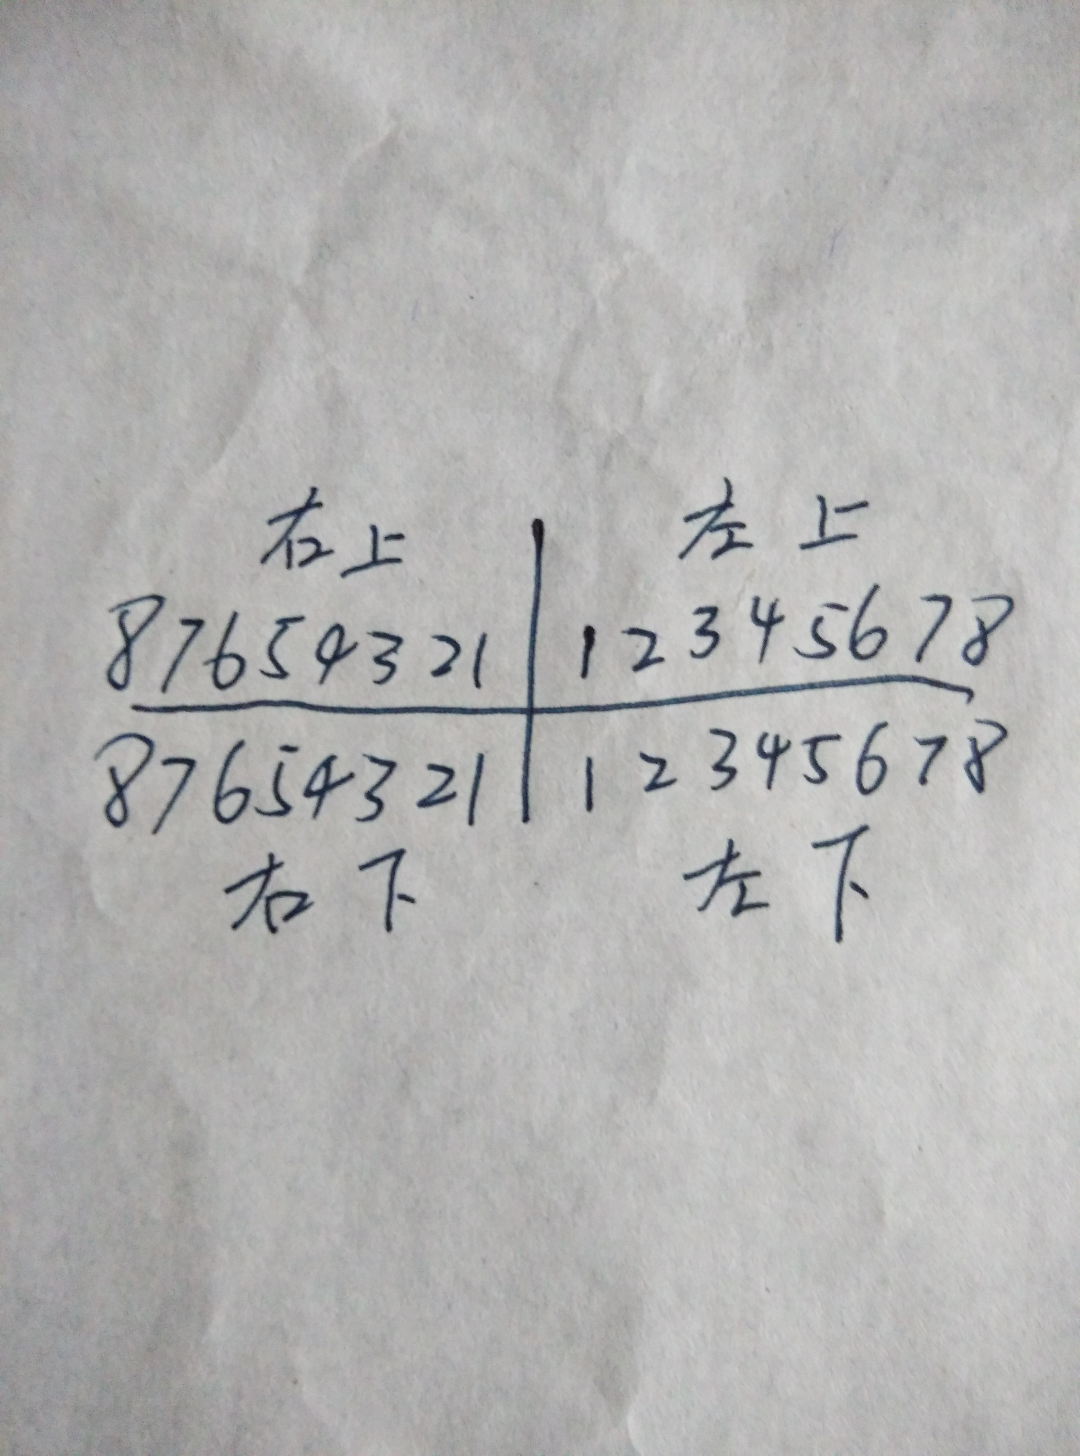 右上 左上
87654321 12345678
87654321 12345678
右下 左下